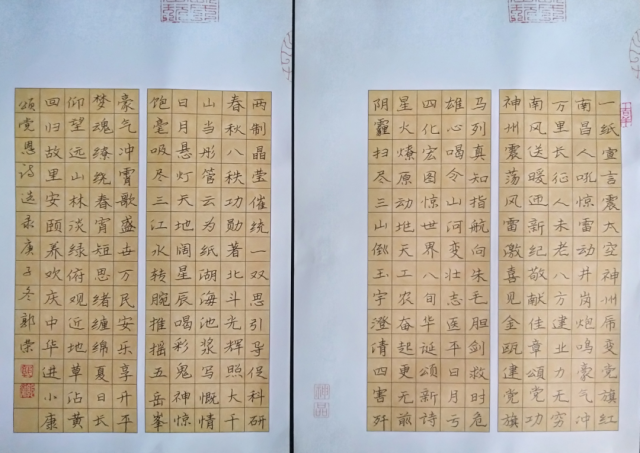 一纸宣言震太空神州易变党旗红
南昌人吼惊雷动井岗炮鸣豪气冲
万里长征人未老八方建业力无穷
南风送暖迎新纪敬献佳章颂党功
神州震荡风雷激喜见金瓯建党旗
马列真知指航向朱毛胆剑救时危
雄心喝令山河变壮志医平日月亏
四化宏图惊世界八旬华诞颂新诗
星火燎原动地天工农奋起更无前
阴霾扫尽三山倒玉宇澄清四害歼
两制晶莹催统一双思引导促科研
春秋八秩功勋著北斗光辉照大千
山当彤管云为纸湖海池浆写慨情
日月悬灯天地阔星辰喝彩鬼神惊
饱毫吸尽三江水转腕推摇五岳峯
豪气冲霄歌盛世万民安乐享升平
梦魂缭绕春宵短思绪缠绵夏日长
仰望远山林淡绿俯观近地草沾黄
回归故里安颐养欢庆中华进小康
颂党恩诗选录庚子冬郭荣